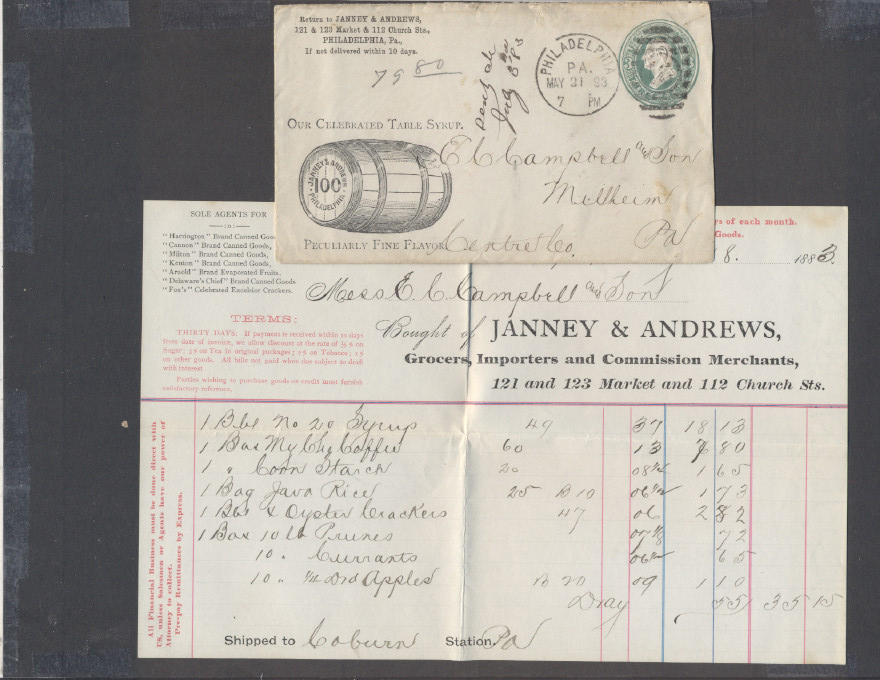 Return to JANNEY & ANDREWS,
121 & 123 Market & 112 Church Sts.,
PHILADELPHIA, Pa.,
If not delivered within 10 days.
79 80
PHILADELPHIA
PA.
MAY 21 83
7 PM
OUR CELEBRATED TABLE SYRUP.
JANNEY & ANDREWS
100
PHILADELPHIA
PECULIARLY FINE FLAVOR
E C Campbell and Son
Millheim
Centre Co. Pa
SOLE AGENTS FOR
"Harrington" Brand Canned Goods
"Cannon" Brand Canned Goods,
"Milton" Brand Canned Goods,
"Kenton" Brand Canned Goods,
"Arnold" Brand Evaporated Fruits.
"Delaware's Chief" Brand Canned Goods
"Fox's" Celebrated Excelsior Crackers.
of each month.
Goods.
8. 1883.
Mess E. C Campbell and Son
TERMS:
THIRTY DAYS: If payment is received within 10 days
from date of invoice, we allow discount at the rate of ½ % on
Sugar; 3 % on Tea in original packages; 2 % on Tobacco; 1 %
on other goods. All bills not paid when due subject to draft
with interest
Parties wishing to purchase goods on credit must furnish
satisfactory reference.
Bought of JANNEY & ANDREWS,
Grocers, Importers and Commission Merchants,
121 and 123 Market and 112 Church Sts.
All Financial Business must be done direct with
US, unless Salesmen or Agents have our power of
Attorney to collect.
Pre-pay Remittances by Express.
1 Bbl No 20 Syrup 49 37 18 13
1 Box Coffee 60 13 7 80
1 " Corn Starch 20 08¼ 1 65
1 Bag Java Rice 25 B 10 06½ 1 73
1 Bbl Oyster Crackers 47 06 2 82
1 Box 10 lb Prunes 07⅛ 72
10 " Currants 06½ 65
10 " ¼ Drd Apples 09 1 10
Dray 55 35 15
Shipped to Coburn Station, Pa